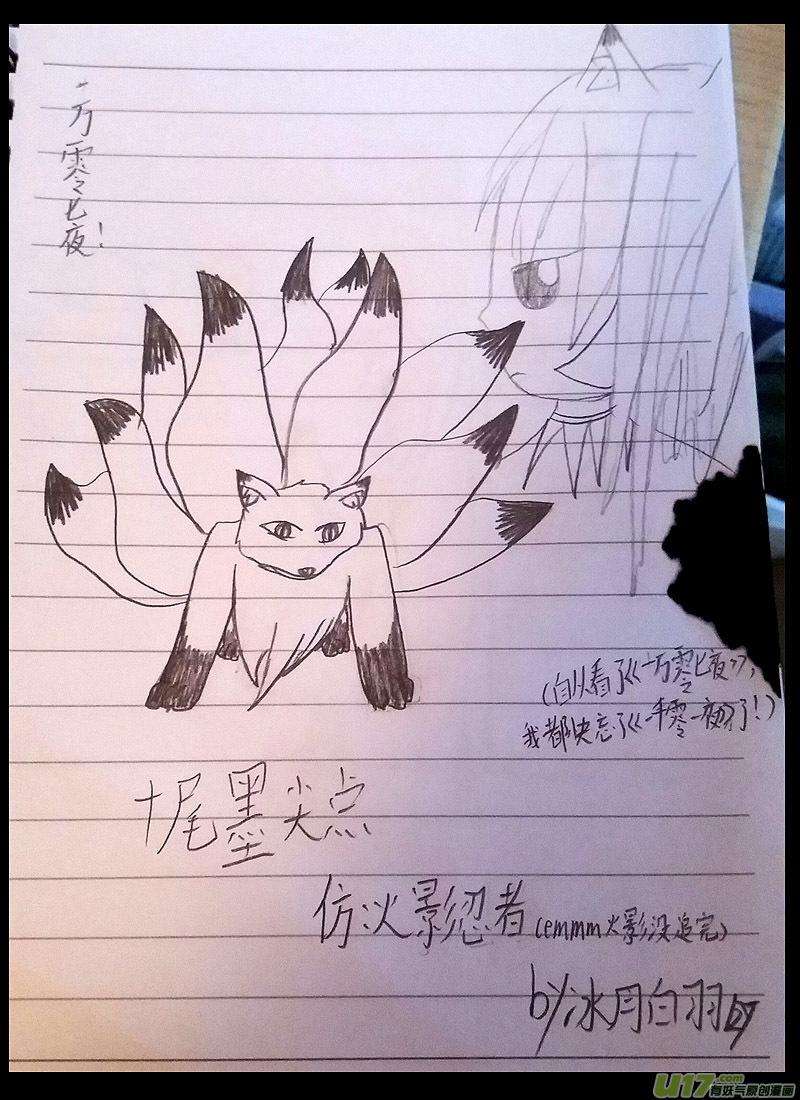 一万零七夜！
（自从看了《一万零七夜》，
我都快忘了《一千零一夜》了！）
十尾墨尖点
仿火影忍者（emmm火影没追完）
by：冰月白羽
U17.com
有妖气原创漫画